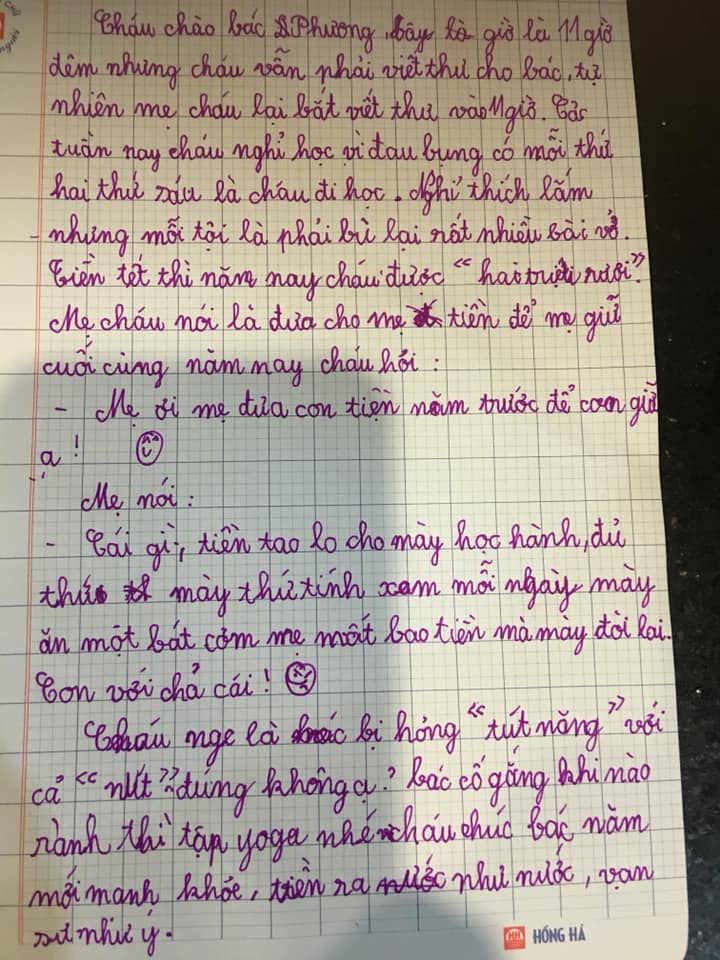 Cháu chào bác Phương, bây giờ là 11 giờ
đêm nhưng cháu vẫn phải viết thư cho bác, tự
nhiên mẹ cháu lại bắt viết thư vào 11 giờ. Các
tuần nay cháu nghỉ học vì đau bụng có mỗi thứ
hai thứ sáu là cháu đi học. Nghỉ thích lắm
nhưng mỗi tội là phải bù lại rất nhiều bài vở.
Tiền tết thì năm nay cháu được "hai triệu rưởi".
Mẹ cháu nói là đưa cho mẹ tiền để mẹ giữ
cuối cùng năm nay cháu hỏi :
- Mẹ ơi mẹ đưa con tiền năm trước để con giữ
ạ !
Mẹ nói :
- Cái gì, tiền tao lo cho mày học hành, đủ
thứ mày thử tính xem mỗi ngày mày
ăn một bát cơm mẹ mất bao tiền mà mày đòi lại.
Con với chả cái !
Cháu nge là bác bị hỏng "tút năng" với
cả "nứt" đúng không ạ? bác cố gắng khi nào
rành thì tập yoga nhé cháu chúc bác năm
mới mạnh khỏe, tiền ra nước như nước, vạn
sự như ý.
HH HỒNG HÀ